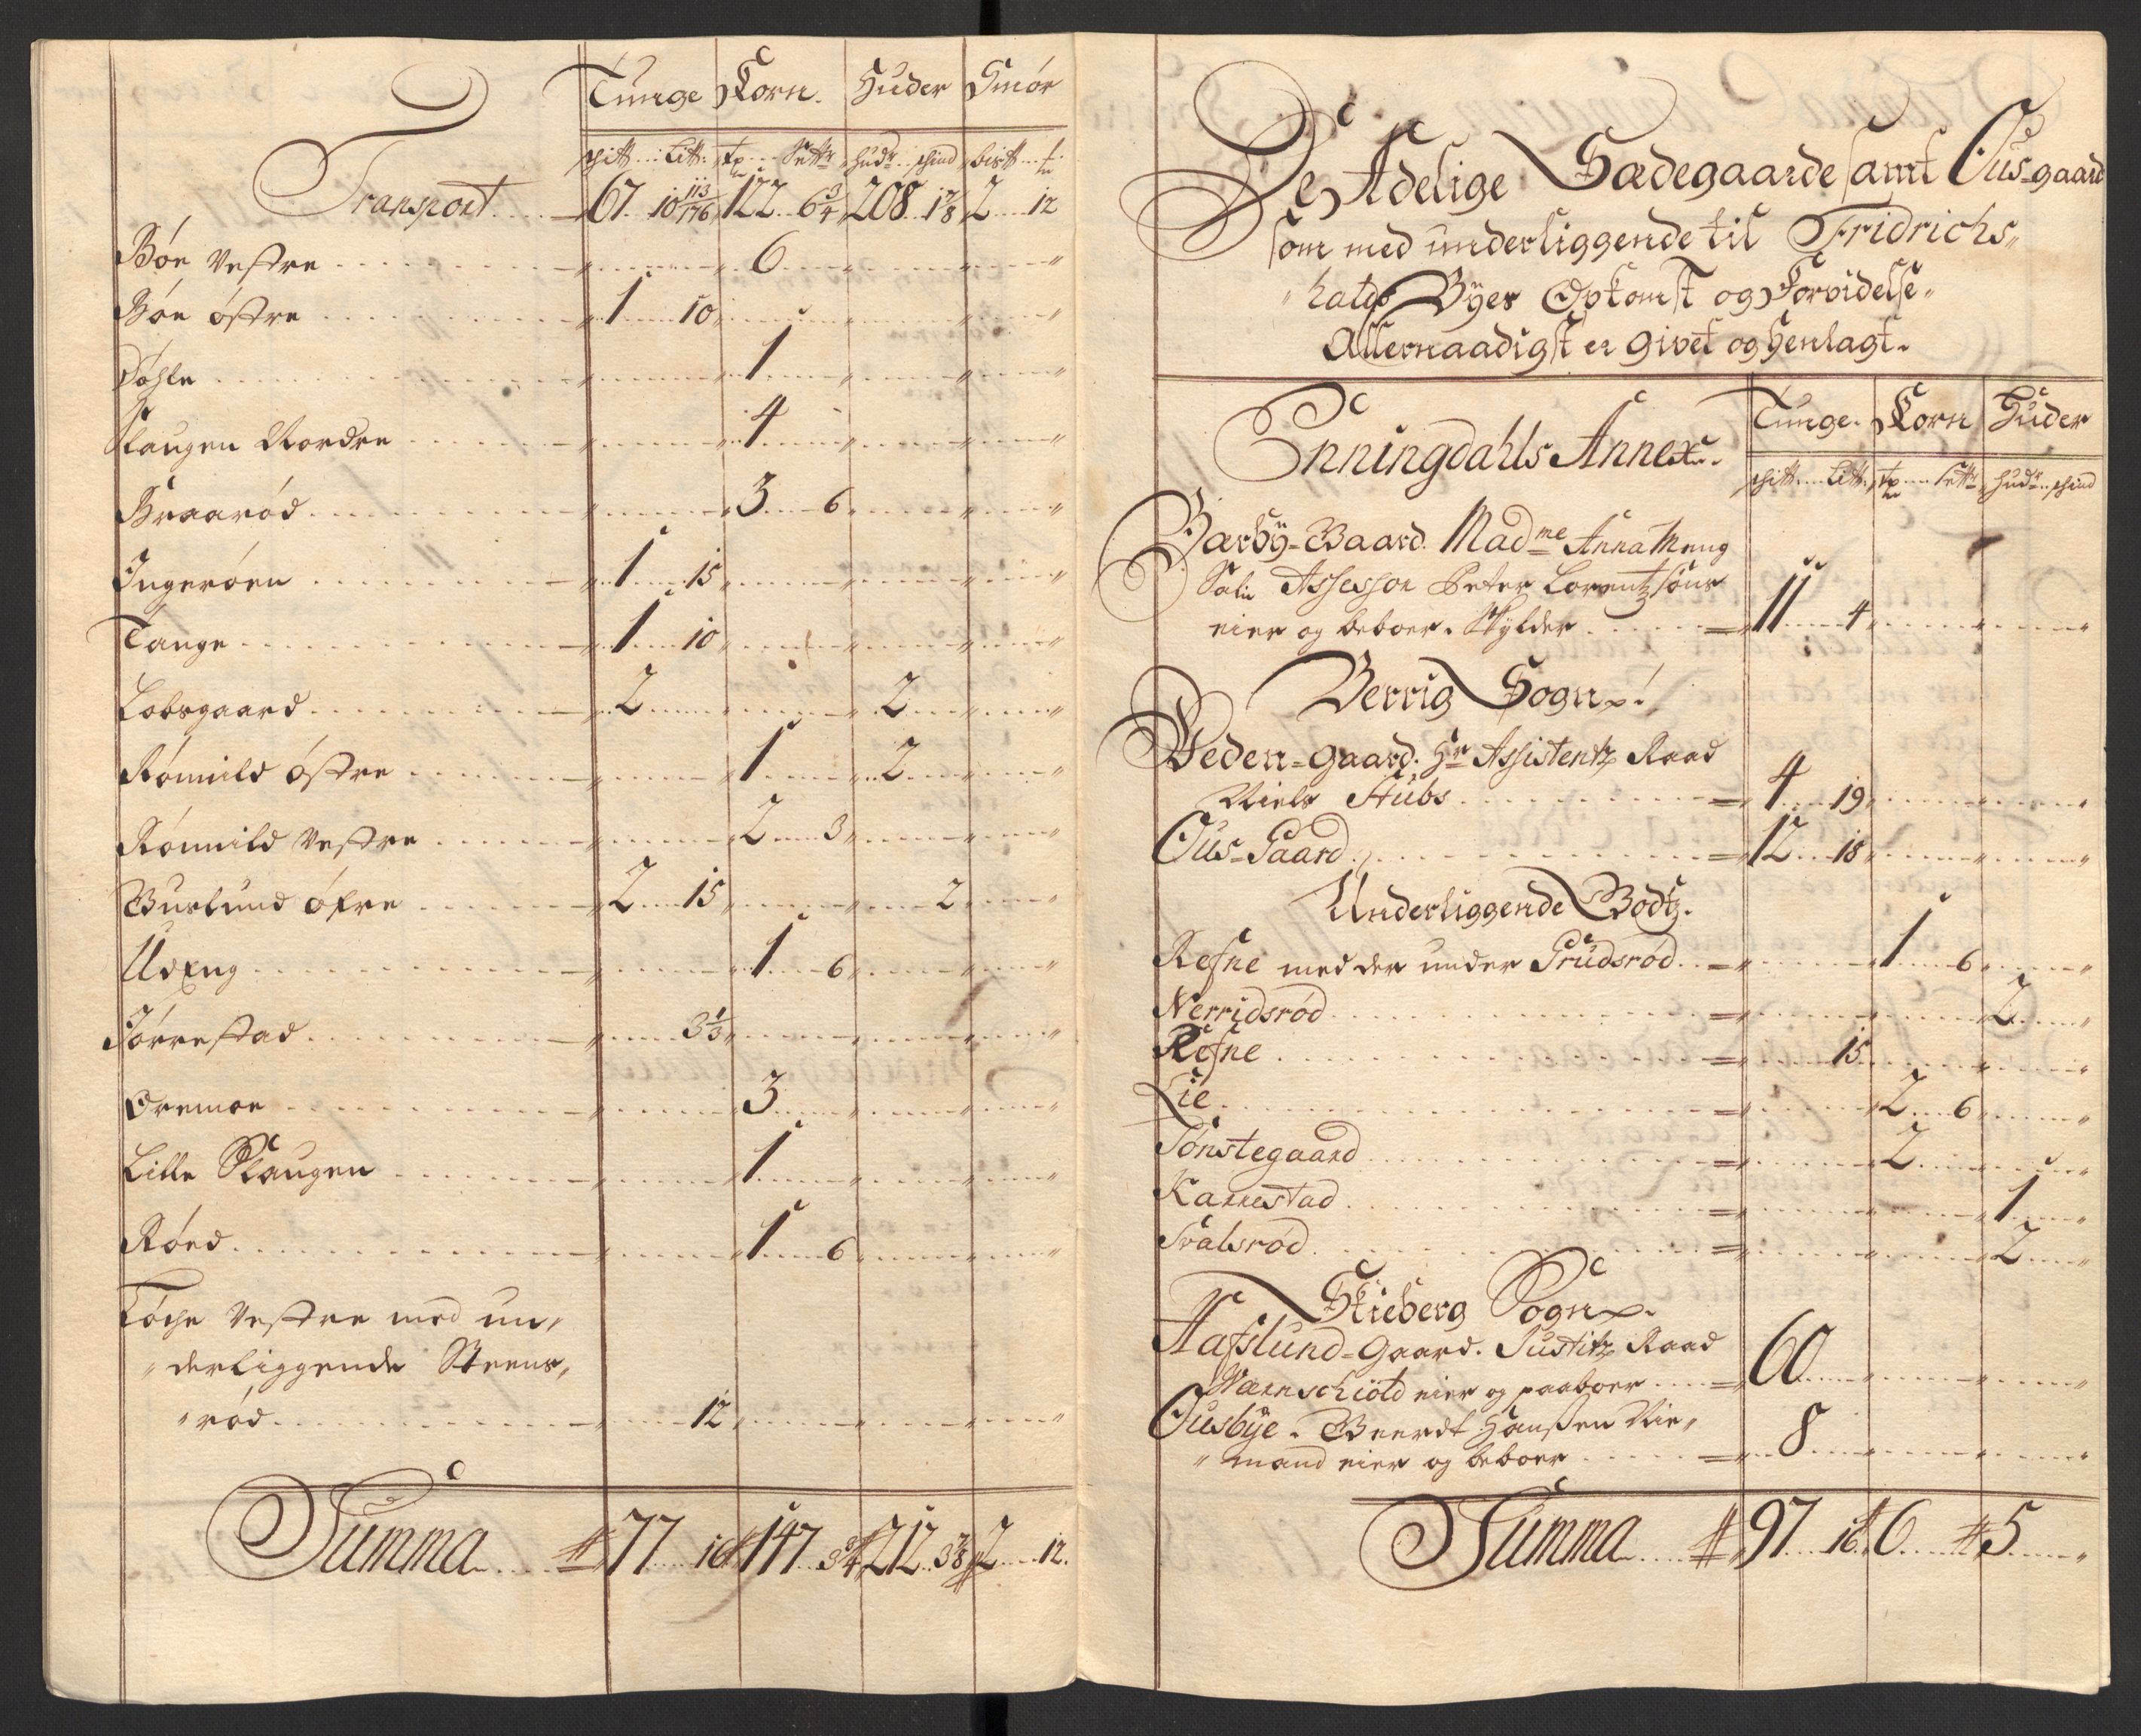 Tunge Korn. Huder Smör
schit. Lit: tn Setr hudr schind bist tn
Transport 67 10 113/176 122 6 3/4 208 1 7/8 2 12
Böe Vestre 6
Böe östre 1 10
Döhle 1
Laugen Nordre 4
Braaröd 3 6
Ingeröen 1 15
Tange 1 10
Labogaard 2 2
Römild östre 1 2
Römild Vestre 2 3
Buslund öfre 2 15 2
Udeng 1 6
Torrestad 3 1/3
Oremoe 3
Lille Slaugen 1
Röed 1 6
Töche Vestre med un„
„derliggende Steens„
„röd 12
Summa 77 147 3 3/4 212 3 7/8 2 12.
De Adelige Sædegaarde samt Ous-gaard
som med underliggende til Fridrichs„
„halds Byes Opkomst og Forvidelse„
Allernaadigst er givet og Henlagt.
Tunge. Korn Huder
Enningdahls Annex.
schit. Lit. tn Setr hudr schind
Bærby-Gaard. Madme Anna Meng
Sali Assessor Peter Lorentzsöns
eier og beboer. Skylder 11 4
Berrig Sogn.
Veden-gaard. Hr Assistentz Raad
Niels Stubs 4 19
Ous-Gaard 12 18
Underliggende Godtz.
Refne med der under Prudsröd 1 6
Nerridsröd 2
Refne 15
Lie 2 6
Tönstegaard 2
Karrestad 1
Svalsröd 2
Skieberg Sogn.
Hafslund-Gaard. Justitz Raad
Wærnschiöld eier og paaboer 60
Ousbye. Geerdt Hanssen Nie„
„mand eier og beboer 8
Summa 97 16 6 5